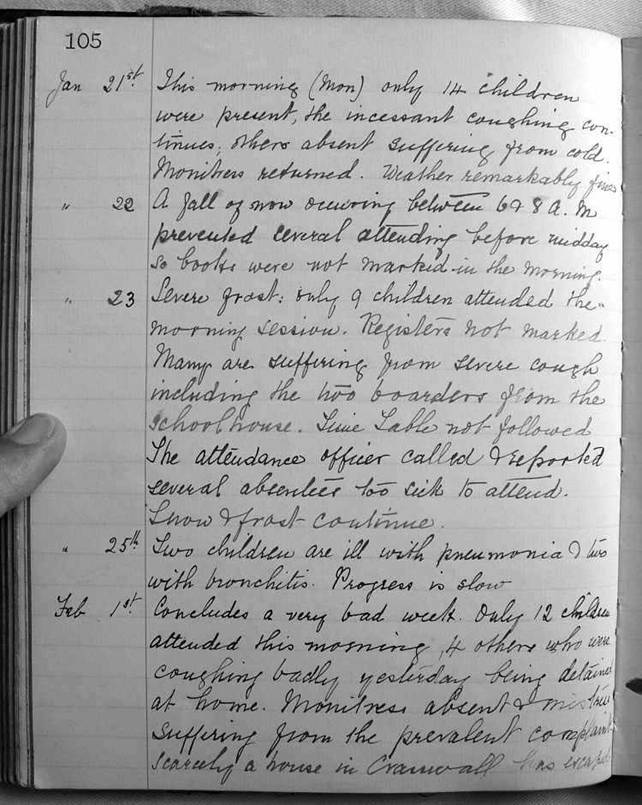 105
Jan 21st This morning (Mon) only 14 children
were present, the incessant coughing con-
tinues; others absent suffering from cold.
Monitress returned. Weather remarkably fine
" 22 A fall of snow occuring between 6 & 8 A. M
prevented several attending before midday
so books were not marked in the morning.
" 23 Severe frost: only 9 children attended the
morning session. Registers not marked
Many are suffering from severe cough
including the two boarders from the
schoolhouse. Time Table not followed
The attendance officer called & reported
several absentees too sick to attend.
Snow & frost continue.
" 25th Two children are ill with pneumonia & two
with bronchitis. Progress is slow
Feb 1st Concludes a very bad week. Only 12 children
attended this morning, 4 others who were
coughing badly yesterday being detained
at home. Monitress absent & mistress
suffering from the prevalent complaint
scarcely a house in Cranwall has escaped